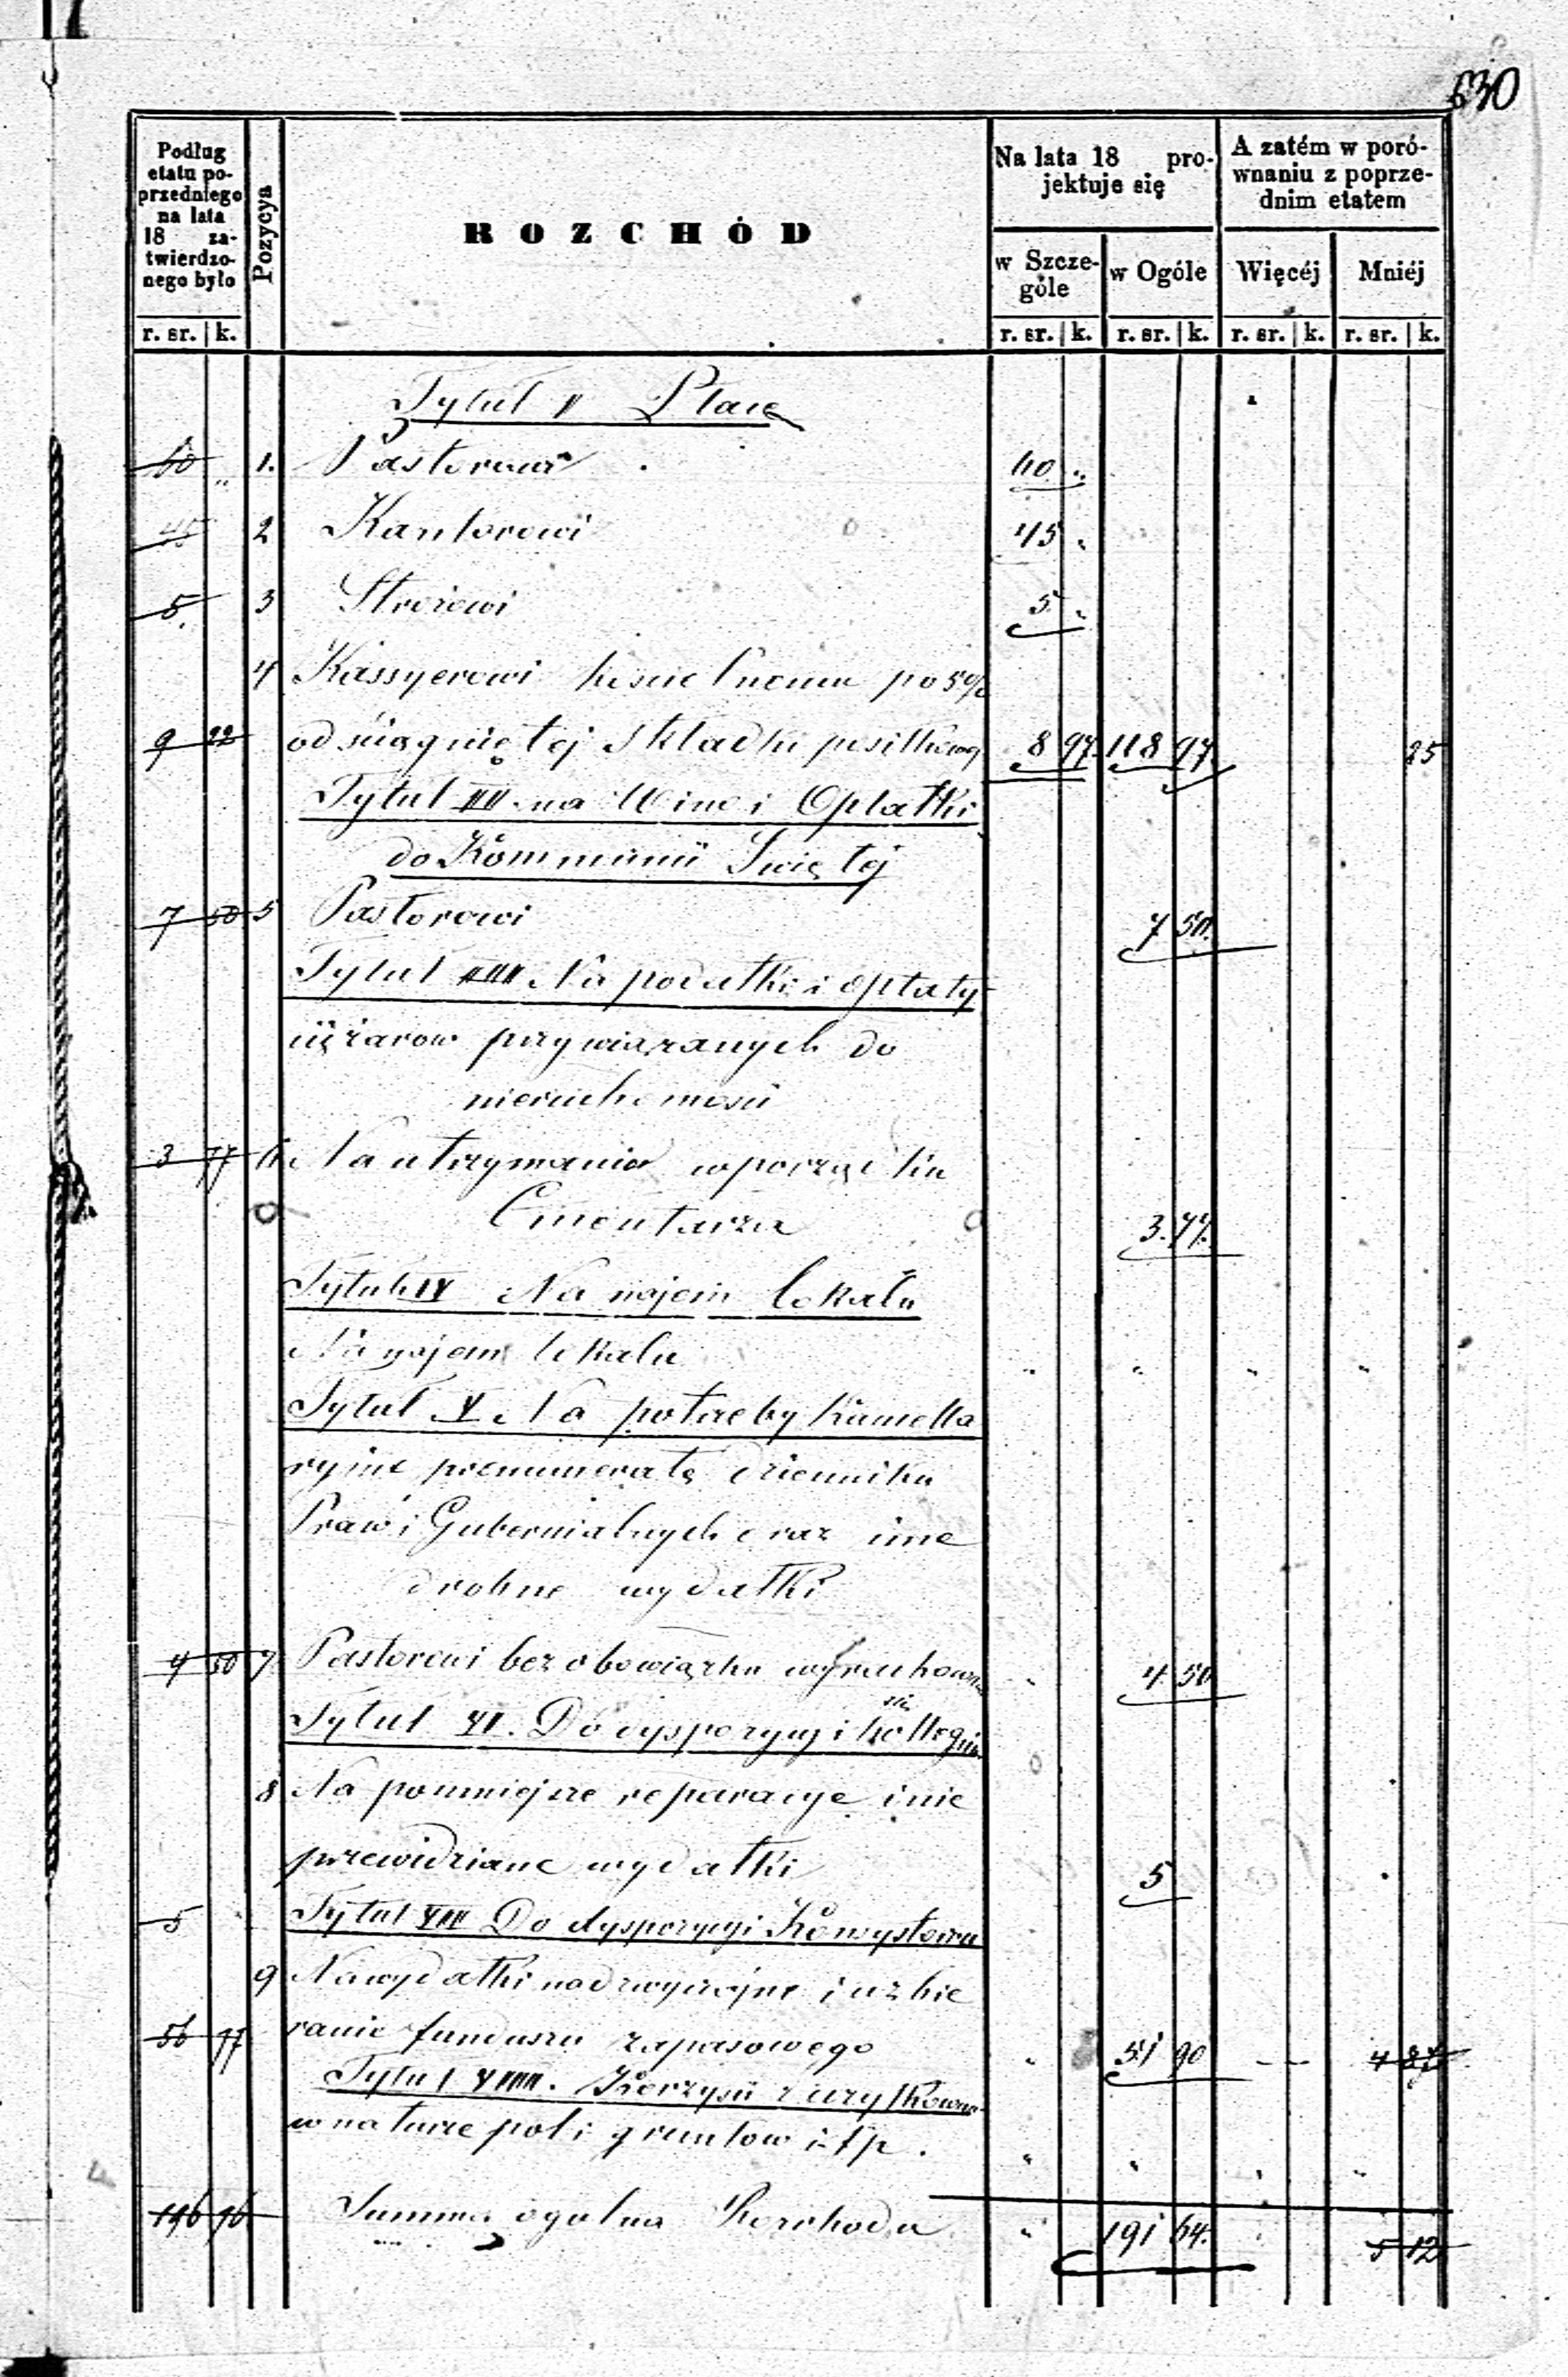 630
Podług etatu poprzedniego na lata 18 zatwierdzonego było
Pozycya
ROZCHÓD
Na lata 18 projektuje się
A zatém w porównaniu z poprzednim etatem
w Szczególe
w Ogóle
Więcéj
Mniéj
r. sr. | k. r. sr. | k. r. sr. | k. r. sr. | k. r. sr. | k.
Tytuł I Płace
60 „ 1. Pastorowi 60 „
45 2 Kantorowi 45 „
5 3 Stróżowi 5 „
4 Kassyerowi kościelnemu po 5%
9 22 od ściągniętej składki posiłkowej 8 97 118 97 25
Tytuł III na Wino i Opłatki
do Kommunii Świętej
7 50 5 Pastorowi 7 50
Tytuł IIII Na podatki i opłaty
ciężarow przywiązanych do
nieruchomości
3 77 6 Na utrzymania w porządku
Cmentarza 3. 77.
Tytuł IV Na najem lokalu
Na najem lokalu „ „ „ „
Tytuł V Na potrzeby Kancella
ryjne prenumeratę dziennika
Praw i Gubernialnych oraz inne
drobne wydatki
4 50 7 Pastorowi bez obowiązku wyrachowa
nia „ 4 50
Tytuł VI. Do dyspozycyi Kollegium
8 Na pomniejsze reparacye i nie
przewidziane wydatki 5
5 Tytuł VII Do dyspozycyi Konsystorza
9 Na wydatki nadzwyczajne i uzbie
56 77 ranie funduszu zapasowego „ 51 90 – – 4 87
Tytuł VIIII. Korzyści z użytkowania
w naturze pol i gruntow i t p. „ „ „ „
196 76 Summa ogolna Rozchodu „ 191 64. 5 12